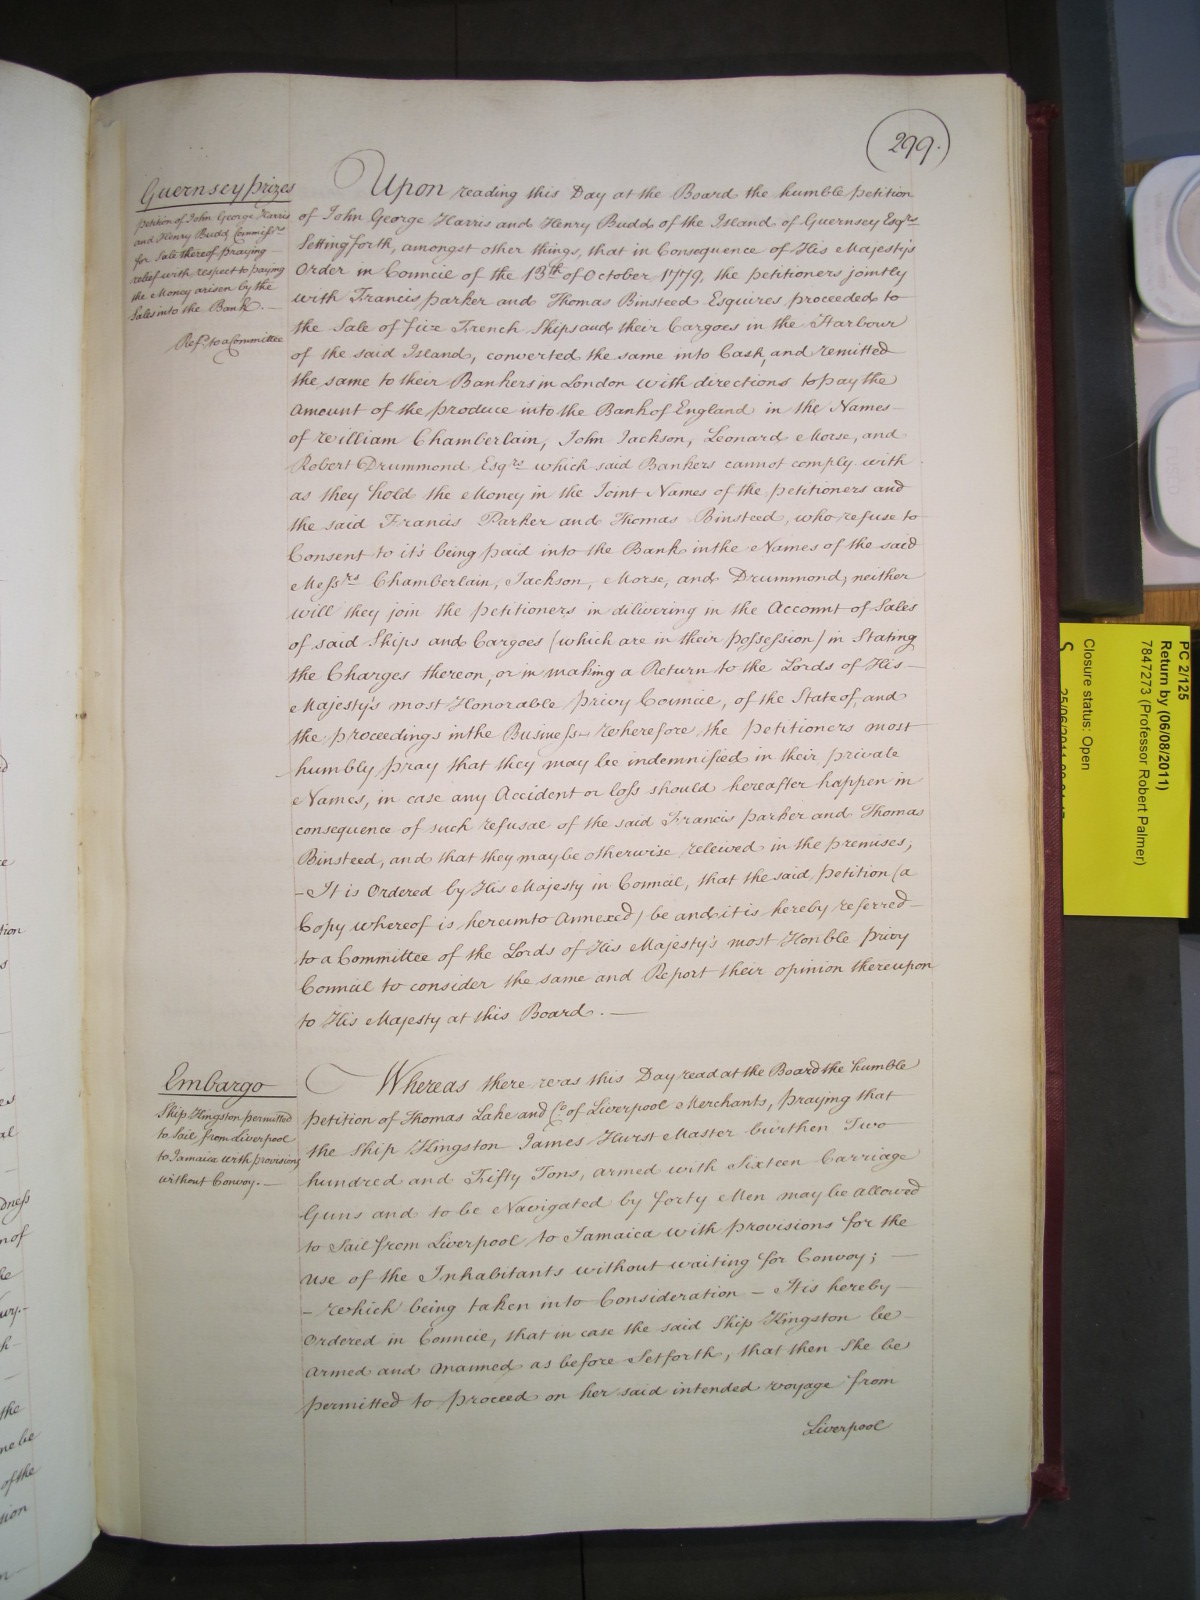 299.
Guernsey prizes
petition of John George Harris
and Henry Budd Commissrs
for Sale thereof praying
relief with respect to paying
the Money arisen by the
Sales into the Bank. —
Refd. to a Committee
Upon reading this Day at the Board the humble petition
of John George Harris and Henry Budd of the Island of Guernsey Esqrs
Setting forth, amongst other things, that in Consequence of His Majesty's
Order in Council of the 13th of October 1779, the petitioners jointly
with Francis parker and Thomas Binsteed Esquires proceeded to
the Sale of five French Ships and their Cargoes in the Harbour
of the said Island, converted the same into Cash, and remitted
the same to their Bankers in London with directions to pay the
Amount of the produce into the Bank of England in the Names
of William Chamberlain, John Jackson, Leonard Morse, and
Robert Drummond Esqrs which said Bankers cannot comply with
as they hold the Money in the Joint Names of the petitioners and
the said Francis Parker and Thomas Binsteed, who refuse to
Consent to it's being paid into the Bank in the Names of the said
Messrs Chamberlain, Jackson, Morse, and Drummond, neither
will they join the petitioners in delivering in the Account of Sales
of said Ships and Cargoes (which are in their possession) in Stating
the Charges thereon, or in making a Return to the Lords of His —
Majesty's most Honorable privy Council, of the State of, and
the proceedings in the Business — Wherefore the petitioners most
humbly pray that they may be indemnified in their private
Names, in case any Accident or loss should hereafter happen in
consequence of such refusal of the said Francis parker and Thomas
Binsteed, and that they may be otherwise releived in the premises;
— It is Ordered by His Majesty in Council, that the said petition (a
Copy whereof is hereunto Annexed) be and it is hereby referred —
to a Committee of the Lords of His Majesty's most Honble privy
Council to consider the same and Report their opinion thereupon
to His Majesty at this Board. —
Embargo
Ship Kingston permitted
to Sail from Liverpool
to Jamaica with provisions
without Convoy. —
Whereas there was this Day read at the Board the humble
petition of Thomas Lake and Co. of Liverpool Merchants, praying that
the Ship Kingston James Hurst Master burthen Two
hundred and Fifty Tons, armed with Sixteen Carriage
Guns and to be Navigated by forty Men may be allowed
to Sail from Liverpool to Jamaica with provisions for the
use of the Inhabitants without waiting for Convoy; —
— Which being taken into Consideration — It is hereby —
Ordered in Council, that in case the said Ship Kingston be
armed and manned as before Setforth, that then She be
permitted to proceed on her said intended voyage from
Liverpool
PC 2/125
Return by (06/08/2011)
7847273 (Professor Robert Palmer)
Closure status: Open
S